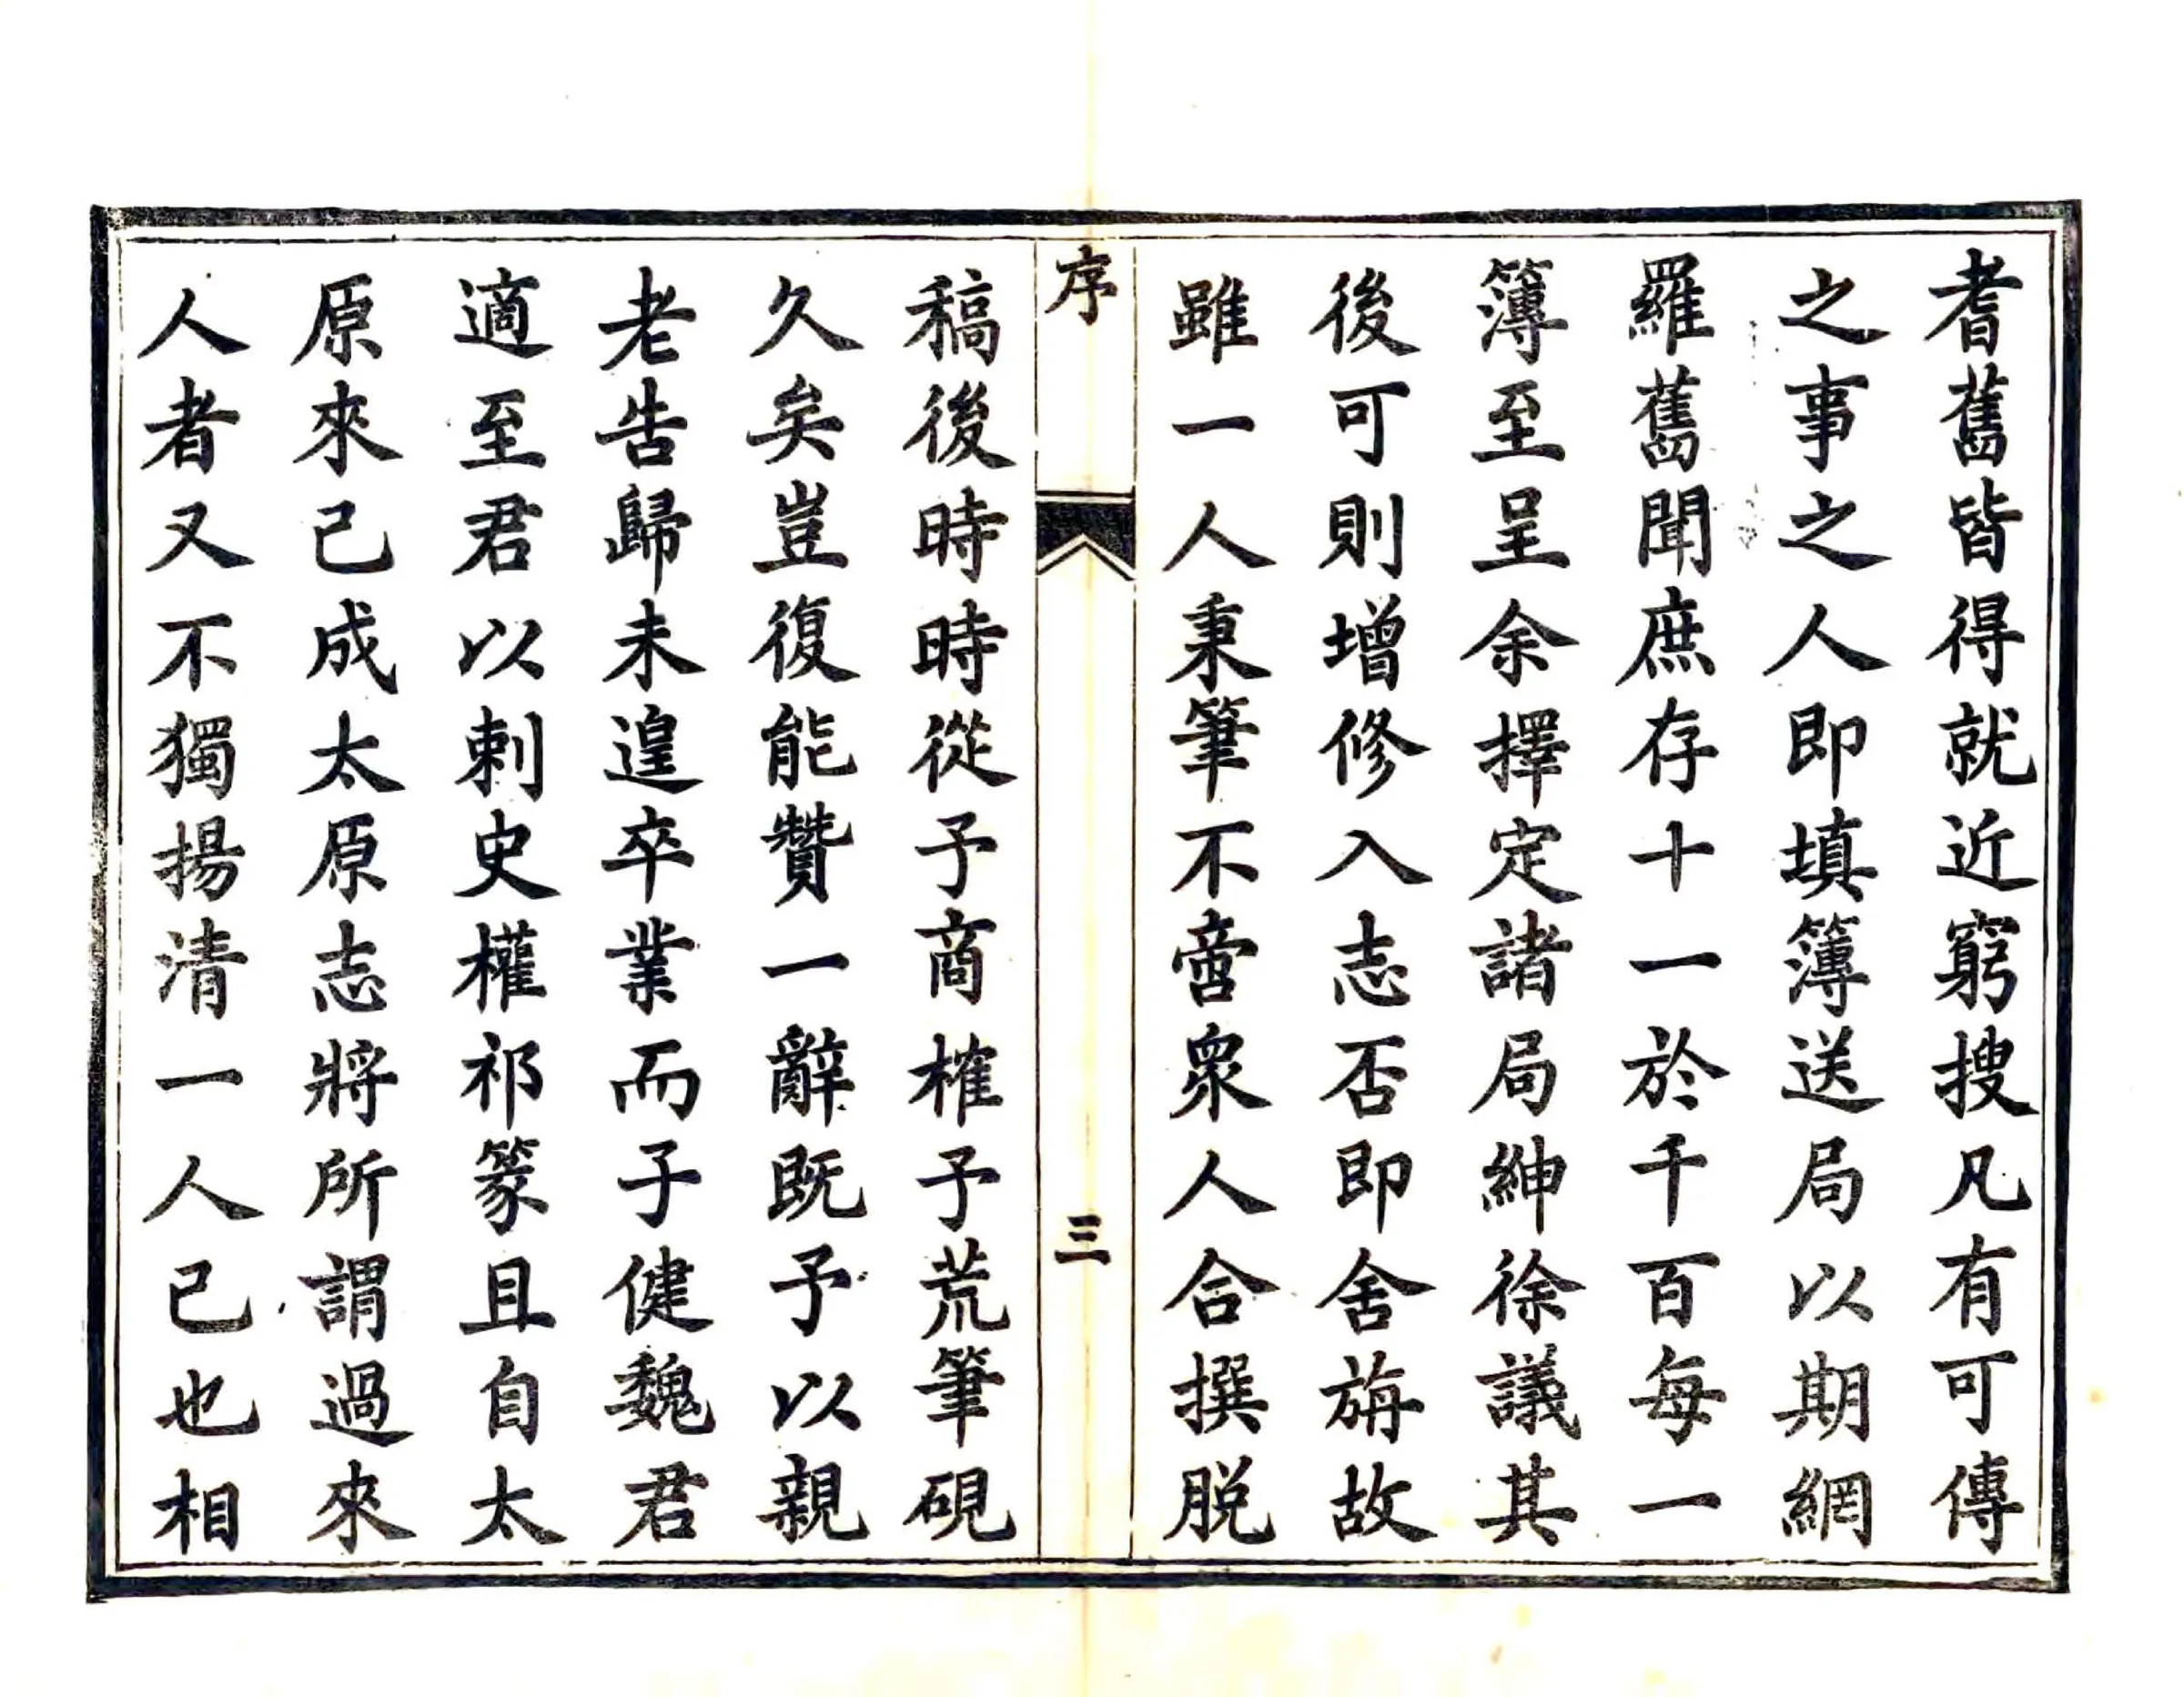 耆舊皆得就近窮搜凡有可傳
之事之人即填簿送局以期網
羅舊聞庶存十一於千百每一
簿至呈余擇定諸局紳徐議其
後可則增修入志否即舍旃故
雖一人秉筆不啻衆人合撰脱
序
三
稿後時時從予商榷予荒筆硯
久矣豈復能贊一辭既予以親
老告歸未遑卒業而子健魏君
適至君以剌史權祁篆且自太
原來已成太原志將所謂過來
人者又不獨揚清一人已也相